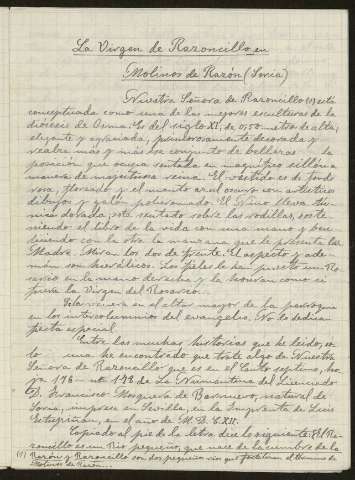 La Virgen de Razoncillo en
Molinos de Razón (Soria)
Nuestra Señora de Razoncillo (1) está
conceptuada como una de las mejores esculturas de la
diócesis de Osma. Es del siglo XI, de 0,50 metros de alta,
elegante y agraciada, primorosamente decorada y
realza más y más su conjunto de bellezas la
posición que ocupa sentada en magnífico sillón a
manera de magestuosa reina. El vestido es de fondo
rosa, floreado y el manto azul oscuro con artísticos
dibujos y galón policromado. El Niño lleva tú-
nica dorada; está sentado sobre las rodillas, soste-
niendo el libro de la vida con una mano y ben-
diciendo con la otra la manzana que le presenta la
Madre. Miran los dos de frente. El aspecto y ade-
mán son hieráticos. Los fieles le han puesto un Ro-
sario en la mano derecha y la honran como si
fuera la Virgen del Rosario.
Se la venera en el altar mayor de la parroquia
en los intercolumnios del evangelio. No le dedican
fiesta especial.
Entre las muchas historias que he leído, so-
lo una he encontrado que trate algo de Nuestra
Señora de Razoncillo que es en el Canto séptimo, ho-
ja 178 de La Numantina del Licenciado
D. Francisco Mosquera de Barnuevo, natural de
Soria, impreso en Sevilla, en la Imprenta de Luis
Estupiñán, en el año de M.D.C.XII.
Copiado al pie de la letra dice lo siguiente: El Ra-
zoncillo es un Río pequeño, que nace de la cumbre de la
(1) Razón y Razoncillo son dos pequeños ríos que fertilizan el término de
Molinos de Razón.